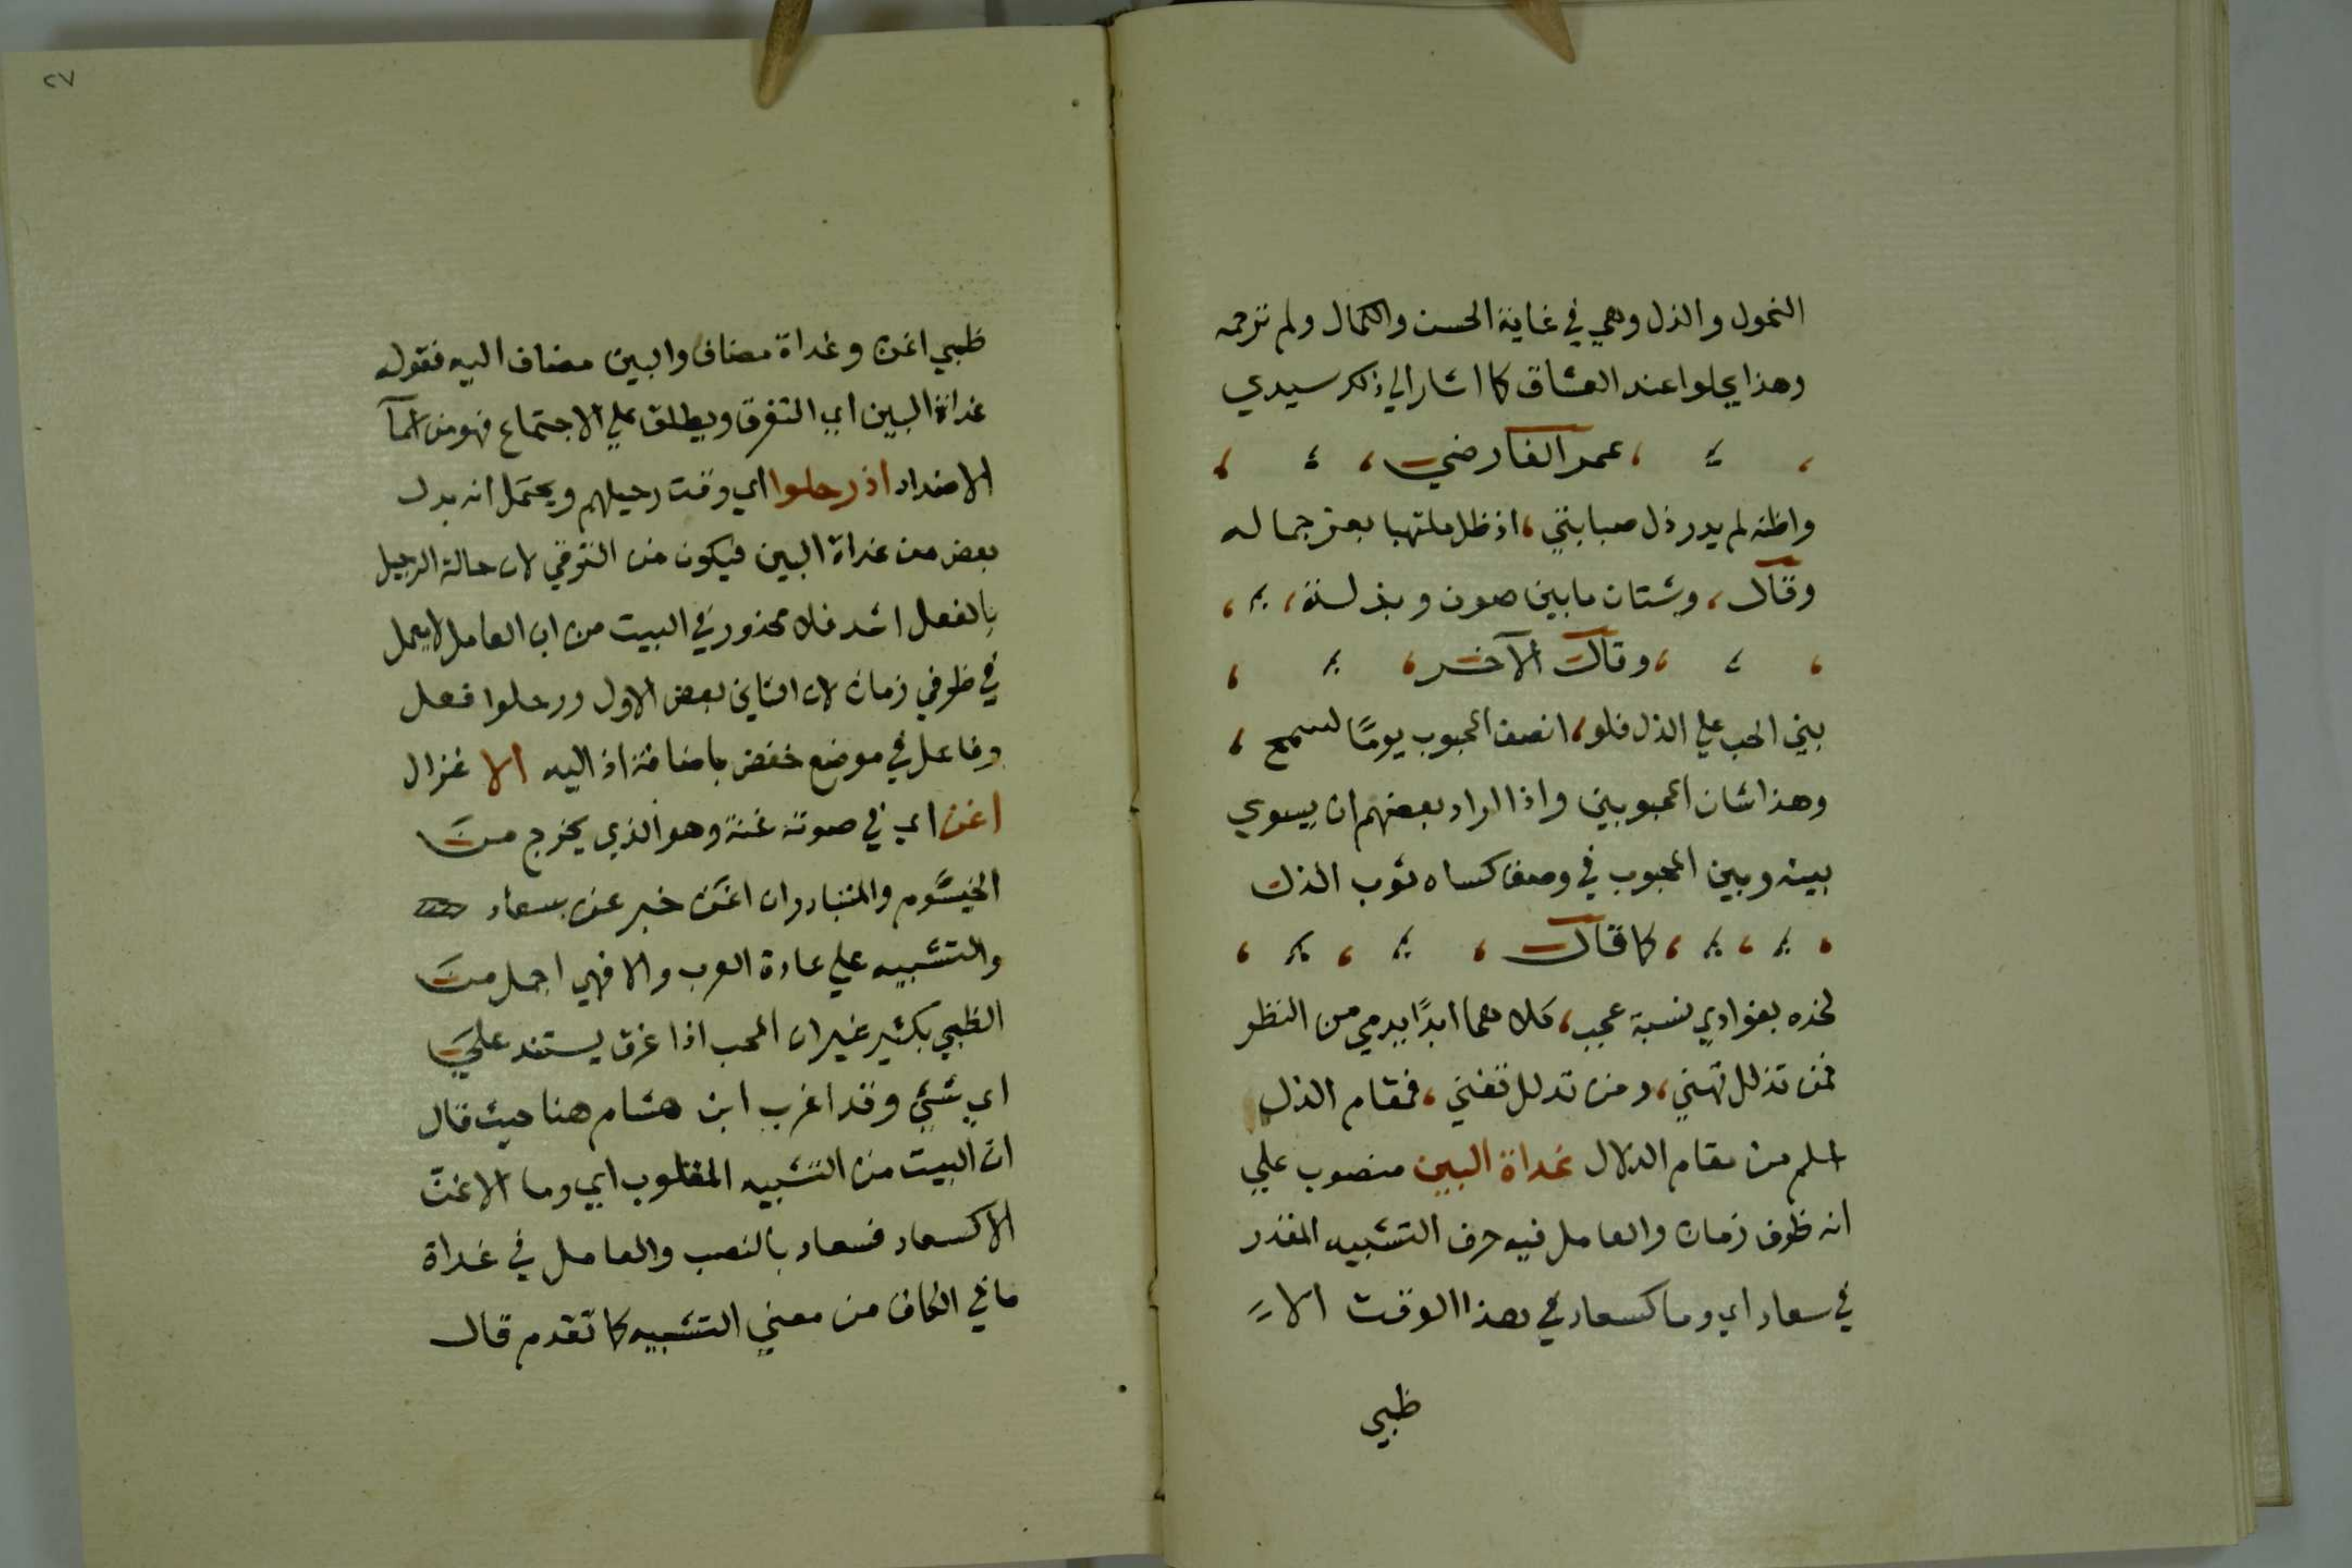 النحول والذل وهي في غاية الحسن والكمال ولم ترحمه
وهذا يحلوا عند العشاق كما اشار الي ذلك سيدي
عمر الفارضي
واظنه لم يدر ذل صبابتي ، اذ ظل ملتهيا بعز جماله
وقال ، وشتان ما بين صون وبذلة ،
وقال الآخر
بني الحب علي الذل فلو ، انصف المحبوب يومًا لسمج ،
وهذا شان المحبوبين واذا اراد بعضهم ان يسوي
بينه وبين المحبوب في وصف كساه ثوب الذل
كما قال
لخده بفوادي نسبة عجب ، كلاهما ابدًا يدمي من النظر
فمن تذلل تهني ، ومن تدلل تفني ، فمقام الذل
اسلم من مقام الدلال غداة البين منصوب علي
انه ظرف زمان والعامل فيه حرف التشبيه المقدر
في سعاد اي وما كسعاد في هذا الوقت الا
ظبي
٢٧
ظبي اغن وغداة مضاف والبين مضاف اليه فقوله
غداة البين اي التفرق ويطلق علي الاجتماع فهو من اسمآ
الاضداد اذ رحلوا اي وقت رحيلهم ويحتمل انه بدل
بعض من غداة البين فيكون من الترقي لان حالة الرحيل
بالفعل اشد فلا محذور في البيت من ان العامل لا يعمل
في ظرفي زمان لان الثاني بعض الاول ورحلوا فعل
وفاعل في موضع خفض باضافة اذ اليه الا غزال
اغن اي في صوته غنة وهو الذي يخرج من
الخيشوم والمتبادر ان اغن خبر عن سعاد
والتشبيه علي عادة العرب والا فهي اجمل من
الظبي بكثير غير ان المحب اذا غرق يستند علي
اي شئي وقد اغرب ابن هشام هنا حيث قال
ان البيت من التشبيه المقلوب اي وما الاغن
الا كسعاد فسعاد بالنصب والعامل في غداة
ما في الكاف من معني التشبيه كما تقدم قال